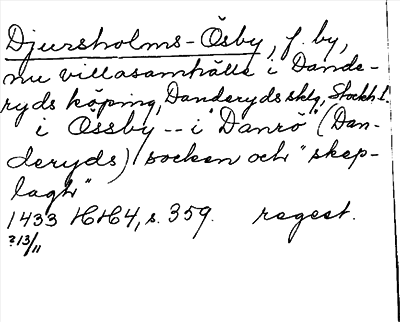 Djursholms-Ösby, f. by,
nu villasamhälle i Dande-
ryds köping, Danderyds sklg, Stockh.l.
i Össby -- i "Danrö" (Dan-
deryds) socken och "skep-
lagh"
1433 HH4, s. 359. regest.
? 13/11